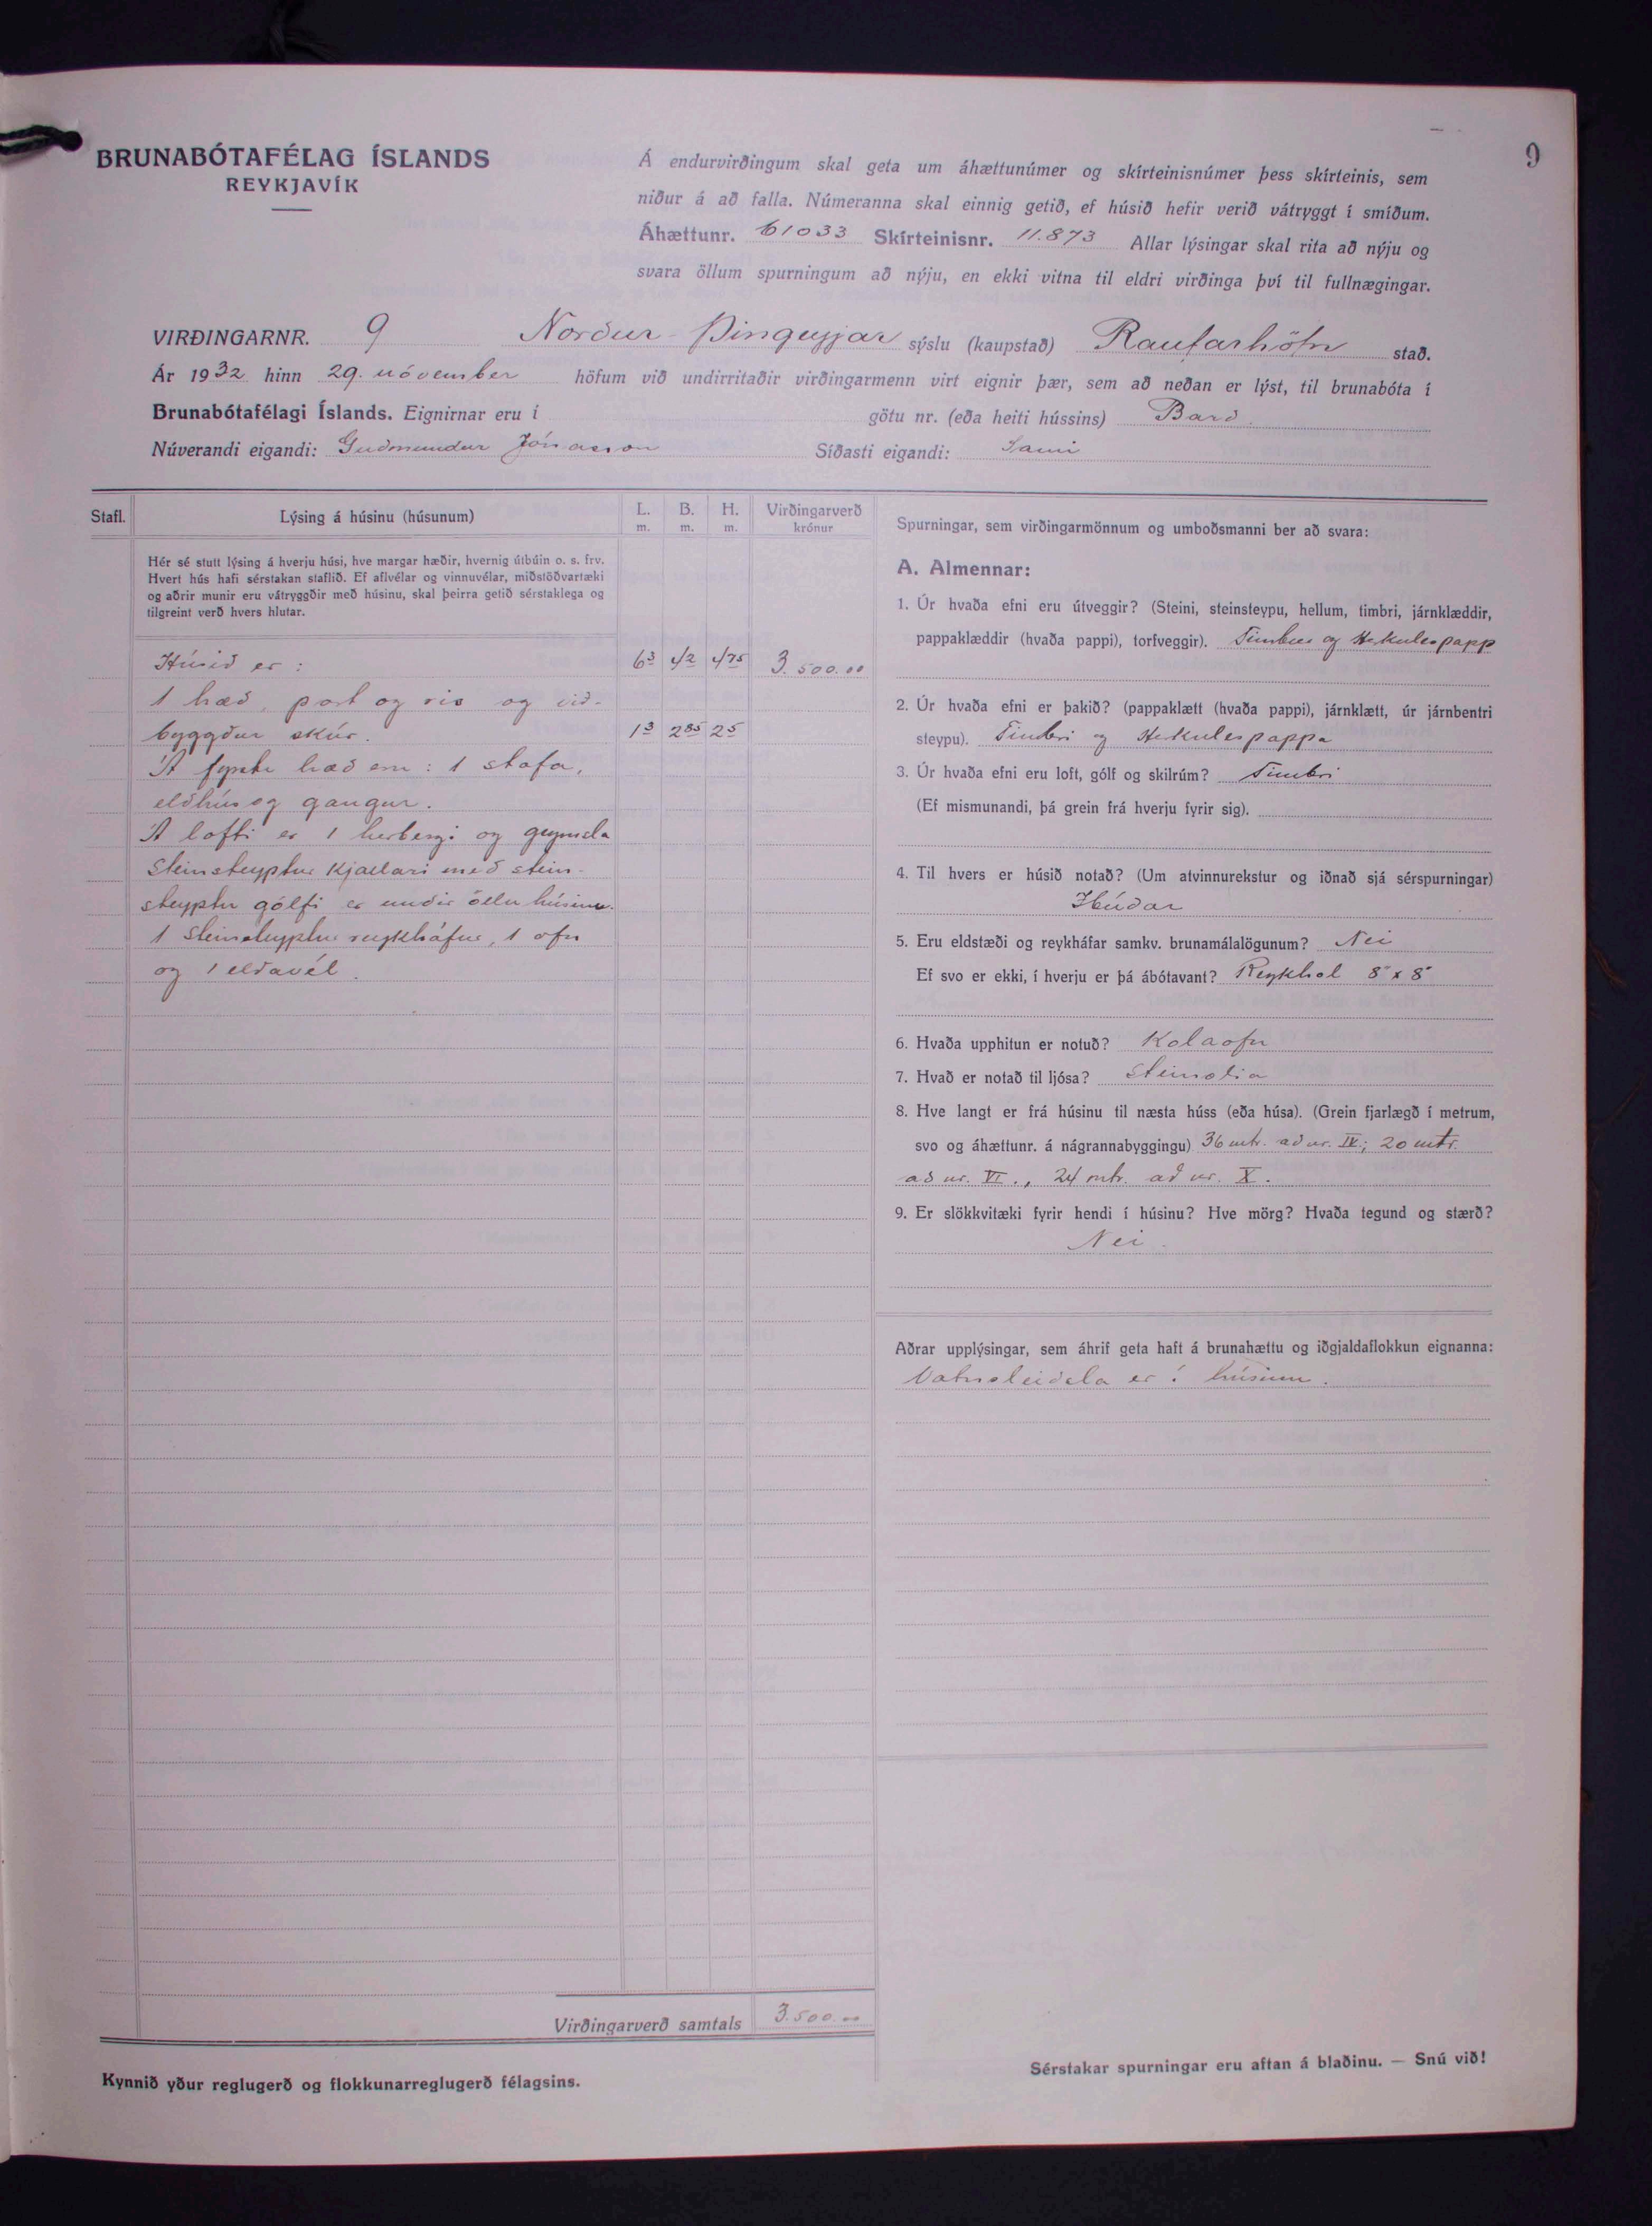 9
BRUNABÓTAFÉLAG ÍSLANDS
REYKJAVÍK
Á endurvirðingum skal geta um áhættunúmer og skírteinisnúmer þess skírteinis, sem
niður á að falla. Númeranna skal einnig getið, ef húsið hefir verið vátryggt í smíðum.
Áhættunr. 61033 Skírteinisnr. 11.873 Allar lýsingar skal rita að nýju og
svara öllum spurningum að nýju, en ekki vitna til eldri virðinga því til fullnægingar.
VIRÐINGARNR. 9 Norður-Þingeyjar sýslu (kaupstað) Raufarhöfn stað.
Ár 1932 hinn 29. nóvember höfum við undirritaðir virðingarmenn virt eignir þær, sem að neðan er lýst, til brunabóta í
Brunabótafélagi Íslands. Eignirnar eru í götu nr. (eða heiti hússins) Barð.
Núverandi eigandi: Guðmundur Jónasson Síðasti eigandi: Sami
Stafl. Lýsing á húsinu (húsunum) L. m. B. m. H. m. Virðingarverð krónur
Hér sé stutt lýsing á hverju húsi, hve margar hæðir, hvernig útbúin o. s. frv.
Hvert hús hafi sérstakan staflið. Ef aflvélar og vinnuvélar, miðstöðvartæki
og aðrir munir eru vátryggðir með húsinu, skal þeirra getið sérstaklega og
tilgreint verð hvers hlutar.
Húsið er: 6³ 4² 4⁷⁵ 3.500.00
1 hæð, port og ris og við-
byggður skúr. 1³ 2⁸⁵ 2⁵
Á fyrstu hæð eru: 1 stofa,
eldhús og gangur.
Á lofti er 1 herbergi og geymsla
Steinsteyptur kjallari með stein-
steyptu gólfi er undir öllu húsinu.
1 Steinsteyptur reykháfur, 1 ofn
og 1 eldavél.
Virðingarverð samtals 3.500.00
Kynnið yður reglugerð og flokkunarreglugerð félagsins.
Spurningar, sem virðingarmönnum og umboðsmanni ber að svara:
A. Almennar:
1. Úr hvaða efni eru útveggir? (Steini, steinsteypu, hellum, timbri, járnklæddir,
pappaklæddir (hvaða pappi), torfveggir). Timbur og Herkulespapp
2. Úr hvaða efni er þakið? (pappaklætt (hvaða pappi), járnklætt, úr járnbentri
steypu). Timbri og Herkulespappa
3. Úr hvaða efni eru loft, gólf og skilrúm? Timbri
(Ef mismunandi, þá grein frá hverju fyrir sig).
4. Til hvers er húsið notað? (Um atvinnurekstur og iðnað sjá sérspurningar)
Íbúðar
5. Eru eldstæði og reykháfar samkv. brunamálalögunum? Nei
Ef svo er ekki, í hverju er þá ábótavant? Reykhol 8" x 8"
6. Hvaða upphitun er notuð? Kolaofn
7. Hvað er notað til ljósa? Steinolia
8. Hve langt er frá húsinu til næsta húss (eða húsa). (Grein fjarlægð í metrum,
svo og áhættunr. á nágrannabyggingu) 36 mtr. að nr. IX; 20 mtr.
að nr. VI., 24 mtr. að nr. X.
9. Er slökkvitæki fyrir hendi í húsinu? Hve mörg? Hvaða tegund og stærð?
Nei.
Aðrar upplýsingar, sem áhrif geta haft á brunahættu og iðgjaldaflokkun eignanna:
Vatnsleiðsla er í húsinu.
Sérstakar spurningar eru aftan á blaðinu. — Snú við!